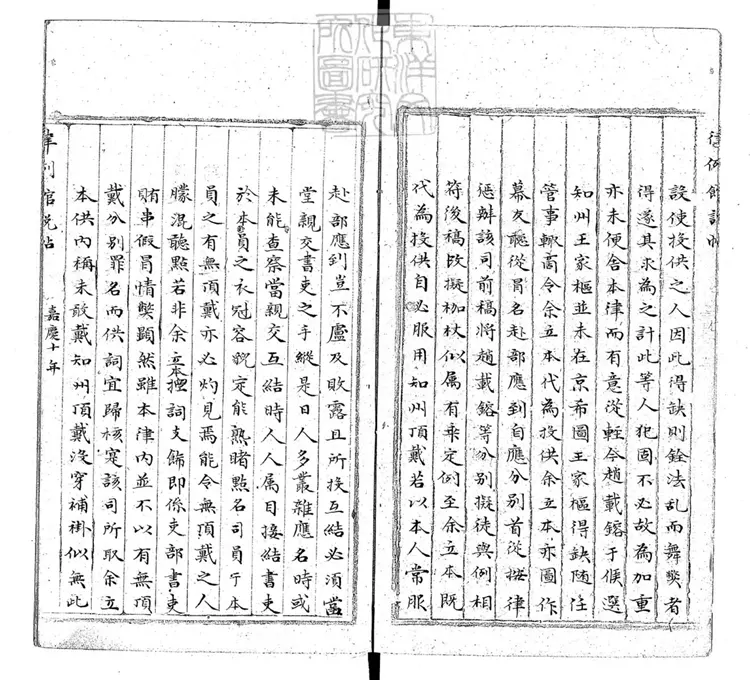 律例館說帖
設使投供之人因此得缺則銓法乱而舞獘者
得遂其求為之計此等人犯固不必故為加重
亦未便舍本律而有意從輕今趙載鎔于候選
知州王家樞並未在京希圖王家樞得缺隨往
管事輙啇令余立本代為投供余立本亦圖作
幕友聽從冐名赴部應到自應分别首從按律
懲辦該司前稿將趙載鎔等分别擬徒與例相
符後稿改擬枷杖似属有乖定例至余立本既
代為投供自必服用知州頂戴若以本人常服
赴部應到豈不慮及敗露且所投互結必須當
堂親交書吏之手縱是日人多叢雜應名時或
未能查察當親交互結時人人属目接結書吏
於本員之衣冠容貌定能熟睹點名司員于本
員之有無頂戴亦必灼見焉能令無頂戴之人
朦混聽點若非余立本揑詞支飾即係吏部書吏
賄串假冐情獘顕然雖本律内並不以有無頂
戴分别罪名而供詞宜歸核寔該司所取余立
本供内稱未敢戴知州頂戴沒穿補褂似無此
律例館說帖
嘉慶十年